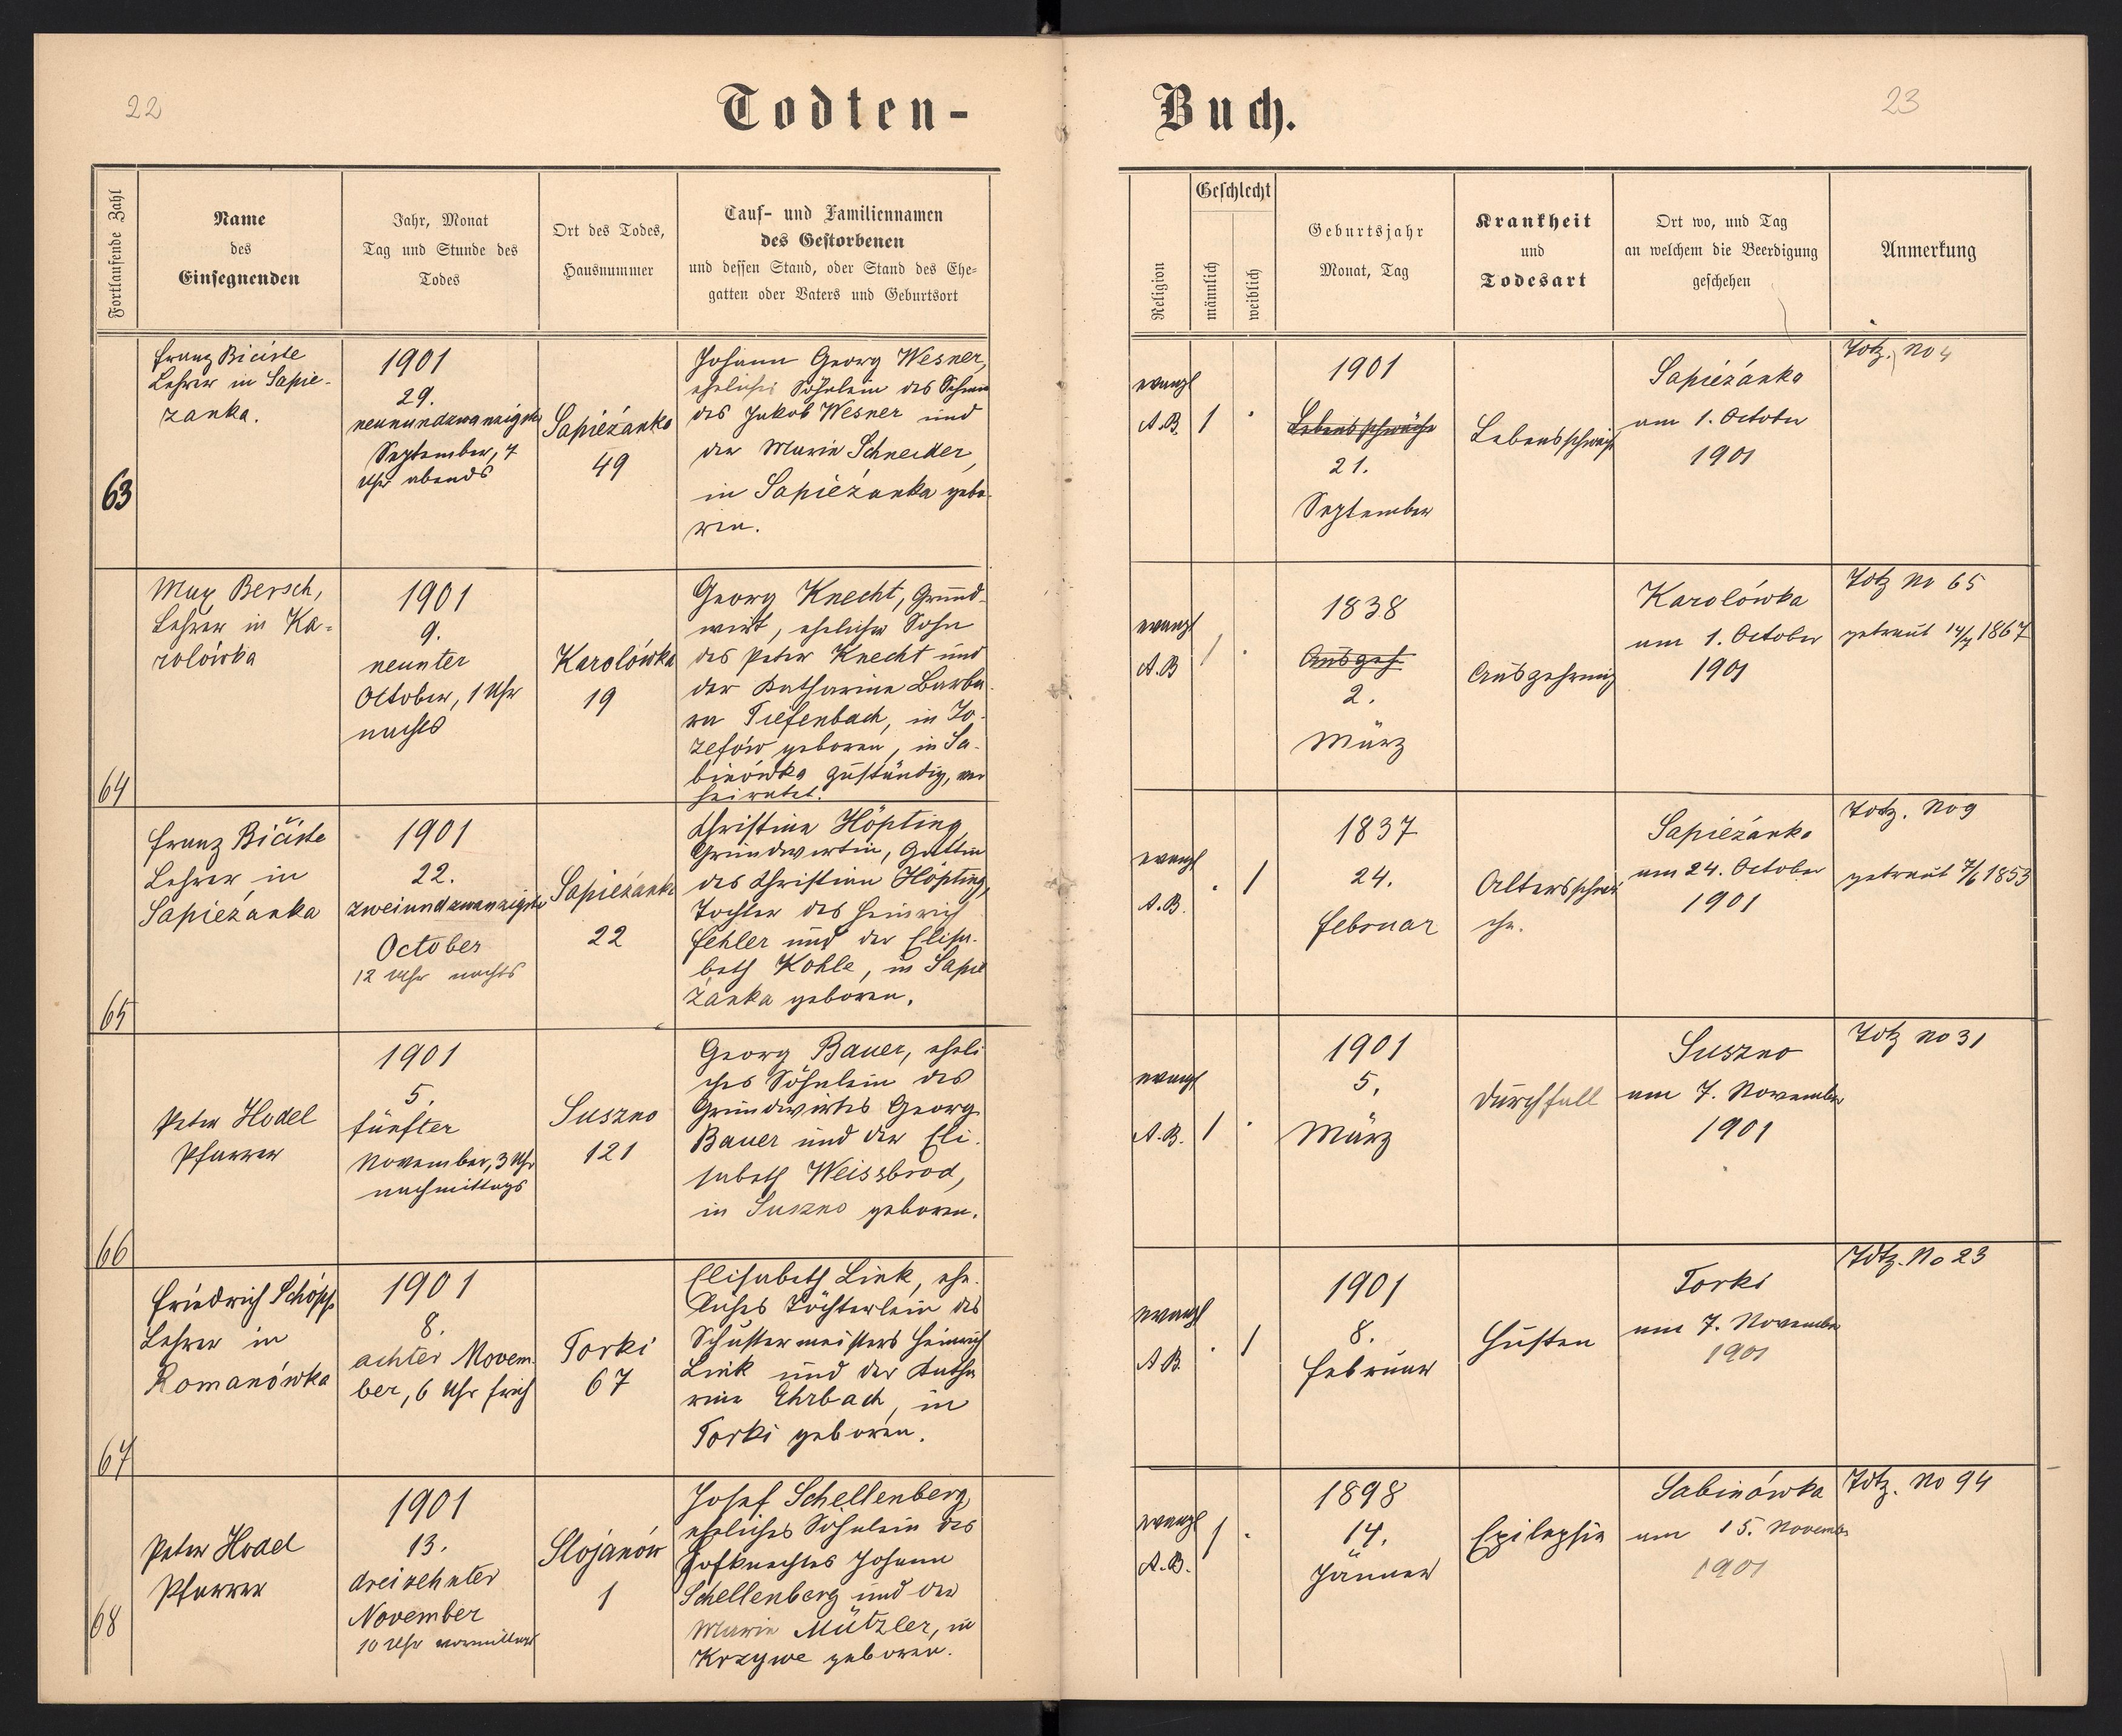 22
Todten-
Fortlaufende Zahl
Name
des
Einsegnenden
Jahr, Monat
Tag und Stunde des
Todes
Ort des Todes,
Hausnummer
Tauf- und Familiennamen
des Gestorbenen
und dessen Stand, oder Stand des Ehe-
gatten oder Vaters und Geburtsort
63
Franz Bičiste
Lehrer in Sapie-
zanka.
1901
29.
neunundzwanzigster
September, 7
Uhr abends
Sapieżanka
49
Johann Georg Wesner,
eheliches Söhnlein des
des Jakob Wesner und
der Marie Schneider,
in Sapieżanka gebo-
ren.
64
Max Bersch,
Lehrer in Ka-
rolówka
1901
9.
neunter
October, 1 Uhr
nachts
Karolówka
19
Georg Knecht, Grund-
wirt, ehelicher Sohn
des Peter Knecht und
der Katharine Barba-
ra Tiefenbach, in Jo-
zefów geboren, in Sa-
binówka zuständig, ver
heiratet.
65
Franz Bičiste
Lehrer in
Sapieżanka
1901
22.
zweiundzwanzigster
October
12 Uhr nachts
Sapieżanka
22
Christine Höpting
Grundwirtin, Gattin
des Christian Höpting,
Tochter des Heinrich
Fehler und der Elisa-
beth Kohle, in Sapie
żanka geboren.
66
Peter Hodel
Pfarrer
1901
5.
fünfter
November, 3 Uhr
nachmittags
Suszno
121
Georg Bauer, eheli
ches Söhnlein des
Grundwirtes Georg
Bauer und der Eli-
sabeth Weissbrod,
in Suszno geboren.
67
Friedrich Schöpp
Lehrer in
Romanówka
1901
8.
achter Novem-
ber, 6 Uhr früh
Torki
67
Elisabeth Link, ehe-
liches Töchterlein des
Schustermeisters Heinrich
Link und der Katha
rine Ehrbach, in
Torki geboren.
68
Peter Hodel
Pfarrer
1901
13.
dreizehnter
November
10 Uhr vormittags
Stojanów
1
Josef Schellenberg,
eheliches Söhnlein des
Hofknechtes Johann
Schellenberg und der
Marie Mützler, in
Krzywe geboren.
23
Buch.
Religion
Geschlecht
männlich
weiblich
Geburtsjahr
Monat, Tag
Krankheit
und
Todesart
Ort wo, und Tag
an welchem die Beerdigung
geschehen
Anmerkung
evangl
A.B.
1
1901
Lebensschwäche
21.
September
Lebensschwäche
Sapieżanka
am 1. October
1901
Totz. No 4
evangl
A.B
1
1838
Ausgeh
2.
März
Auszehrung
Karolówka
am 1. October
1901
Totz No 65
getraut 14/7 1867
evangl
A.B.
1
1837
24.
Februar
Altersschwä
che.
Sapieżanka
am 24. October
1901
Totz. No 9
getraut 7/6 1853
evangl
A.B.
1
1901
5.
März
Durchfall
Suszno
am 7. November
1901
Totz No 31
evangl
A.B.
1
1901
8.
Februar
Husten
Torki
am 7. November
1901
Totz. No 23
evangl
A.B.
1
1898
14.
Jänner
Epilepsie
Sabinówka
am 15. November
1901
Totz. No 94